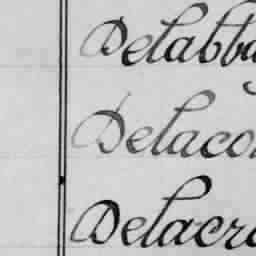 Delabba
Delaco
Delacr